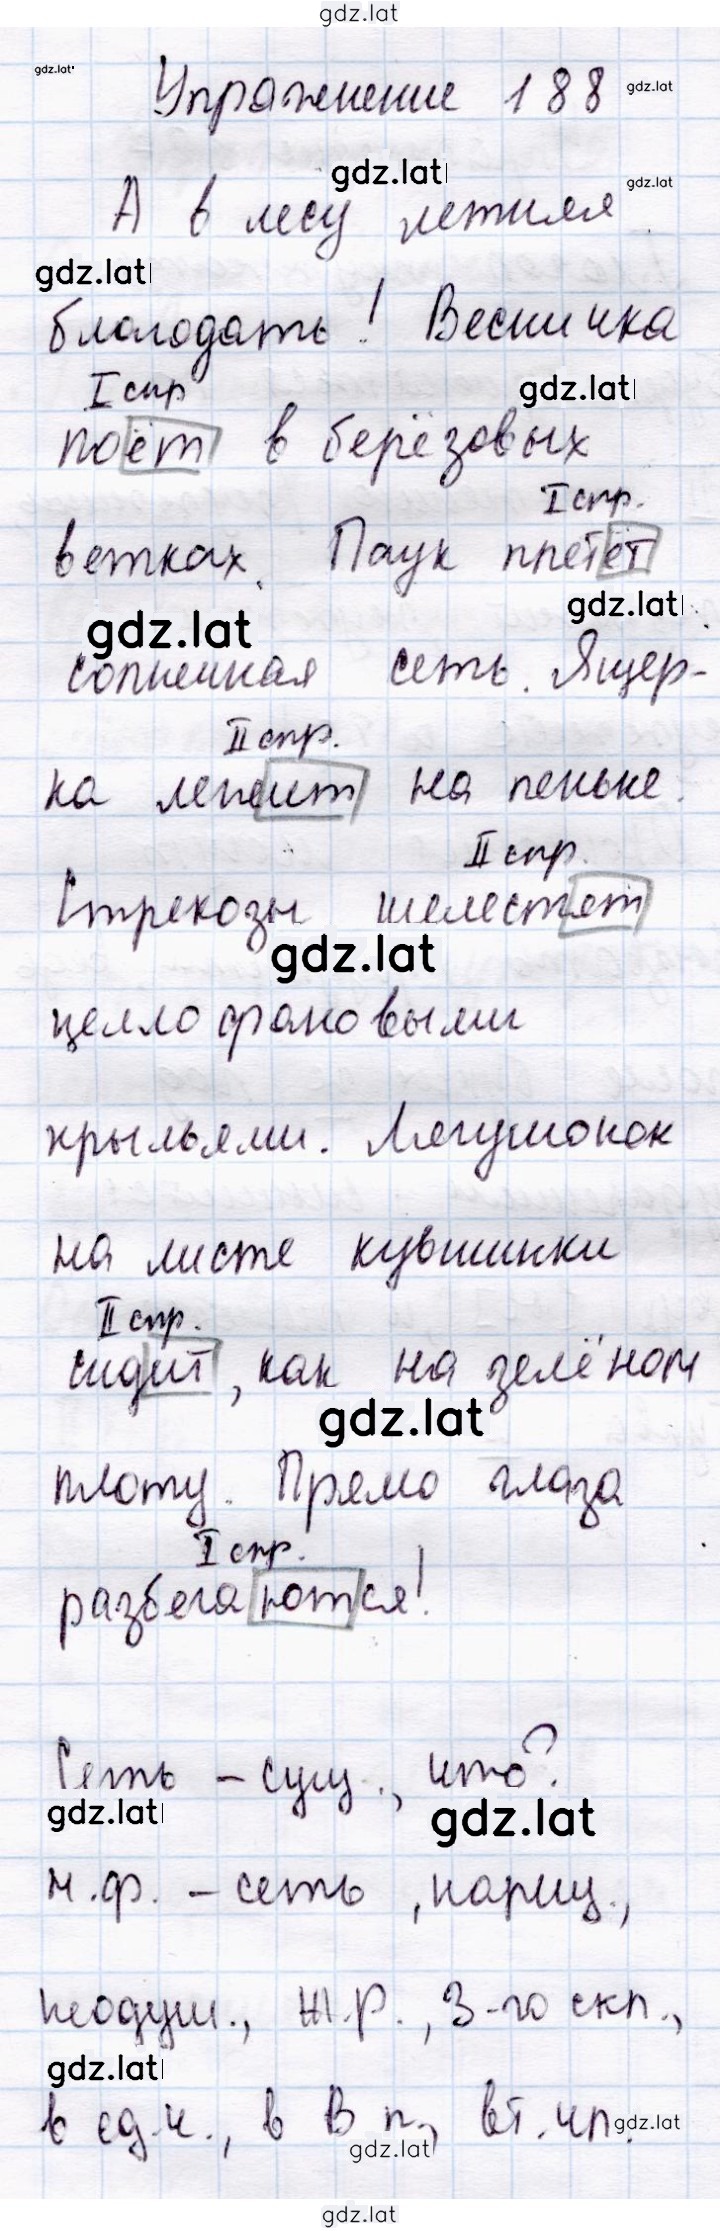 gdz.lat
gdz.lat
Упражнение 188 gdz.lat
gdz.lat
gdz.lat
А в лесу летиля
gdz.lat
благодать! Весничка
I спр
gdz.lat
поёт в берёзовых
I спр.
ветках. Паук плетёт
gdz.lat
gdz.lat
солнечная сеть. Ящер-
II спр.
ка лепеит на пеньке.
II спр.
Стрекозы шелестят
gdz.lat
целлофановыми
крыльями. Лягушонок
на листе кувшинки
II спр.
сидит, как на зелёном
gdz.lat
плоту. Прямо глаза
I спр.
разбегаются!
Сеть – сущ., что?
gdz.lat
gdz.lat
н.ф. – сеть, нариц.,
неодуш., ж.р., 3-го скл.,
gdz.lat
в ед.ч., в В п., вт.чл.
gdz.lat
gdz.lat
gdz.lat